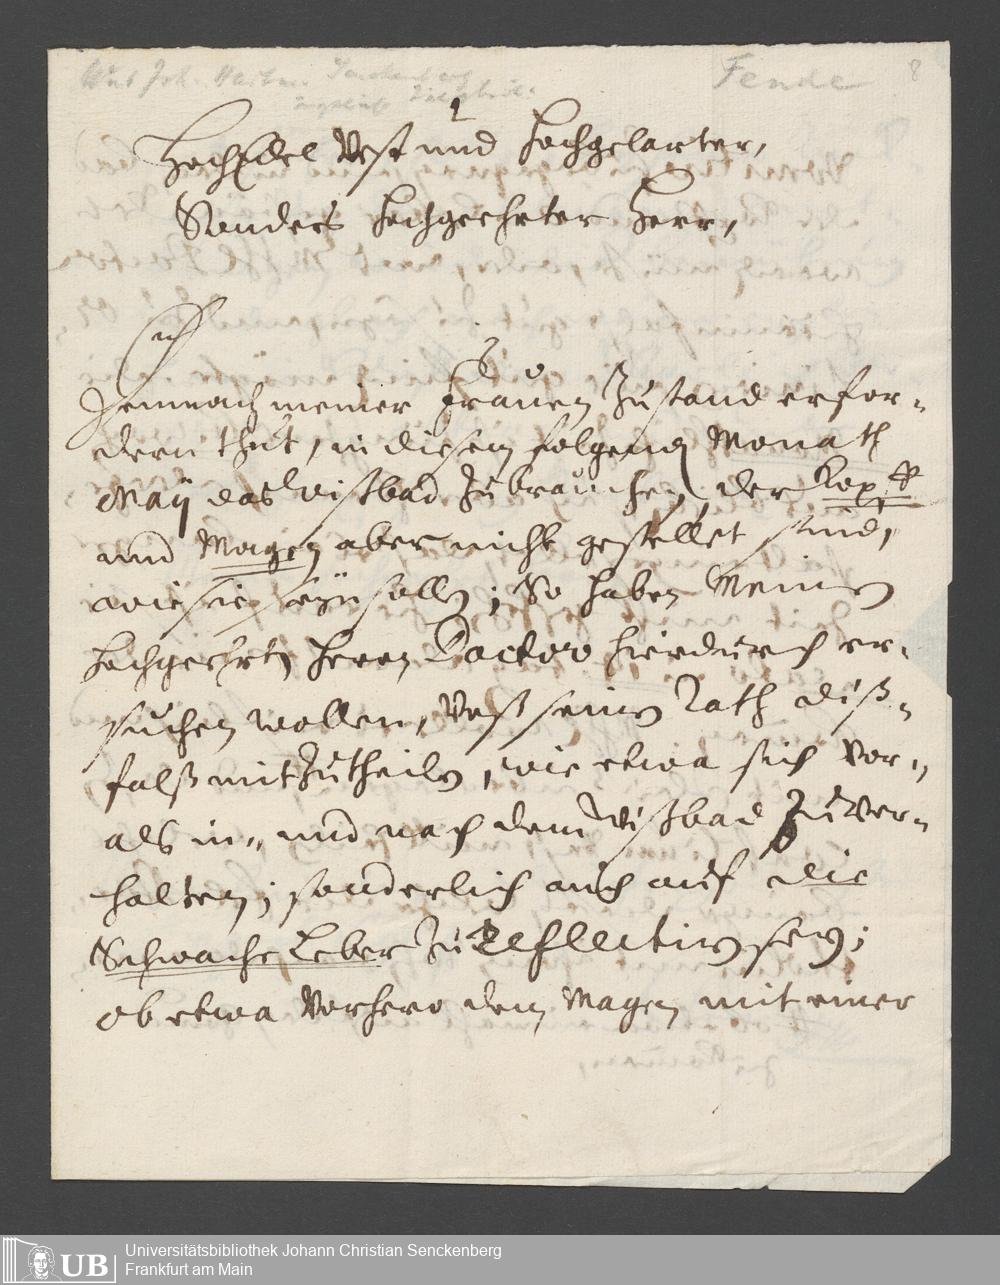 Fende
8
HochEdel Vest und Hochgelarter,
Sonders Hochgeehrter Herr,
Demnach meiner Frauen Zustand erfor-
dern thut, in diesem folgend Monath
Maÿ das Wißbad zubrauchen, der Kopff
und Magen aber nicht gestellet sind,
wie sie seyn sollen; So haben Meinen
Hochgeehrten Herrn Doctor hierdurch er-
suchen wollen, Unß seinen Rath diß-
falß mitzutheilen, wie etwa sich vor-,
als in- und nach dem Wißbad zu ver-
halten; sonderlich auch auf die
Schwache Leber zu reflectiren sey;
ob etwa vorhero den Magen mit einer
Universitätsbibliothek Johann Christian Senckenberg
Frankfurt am Main
UB